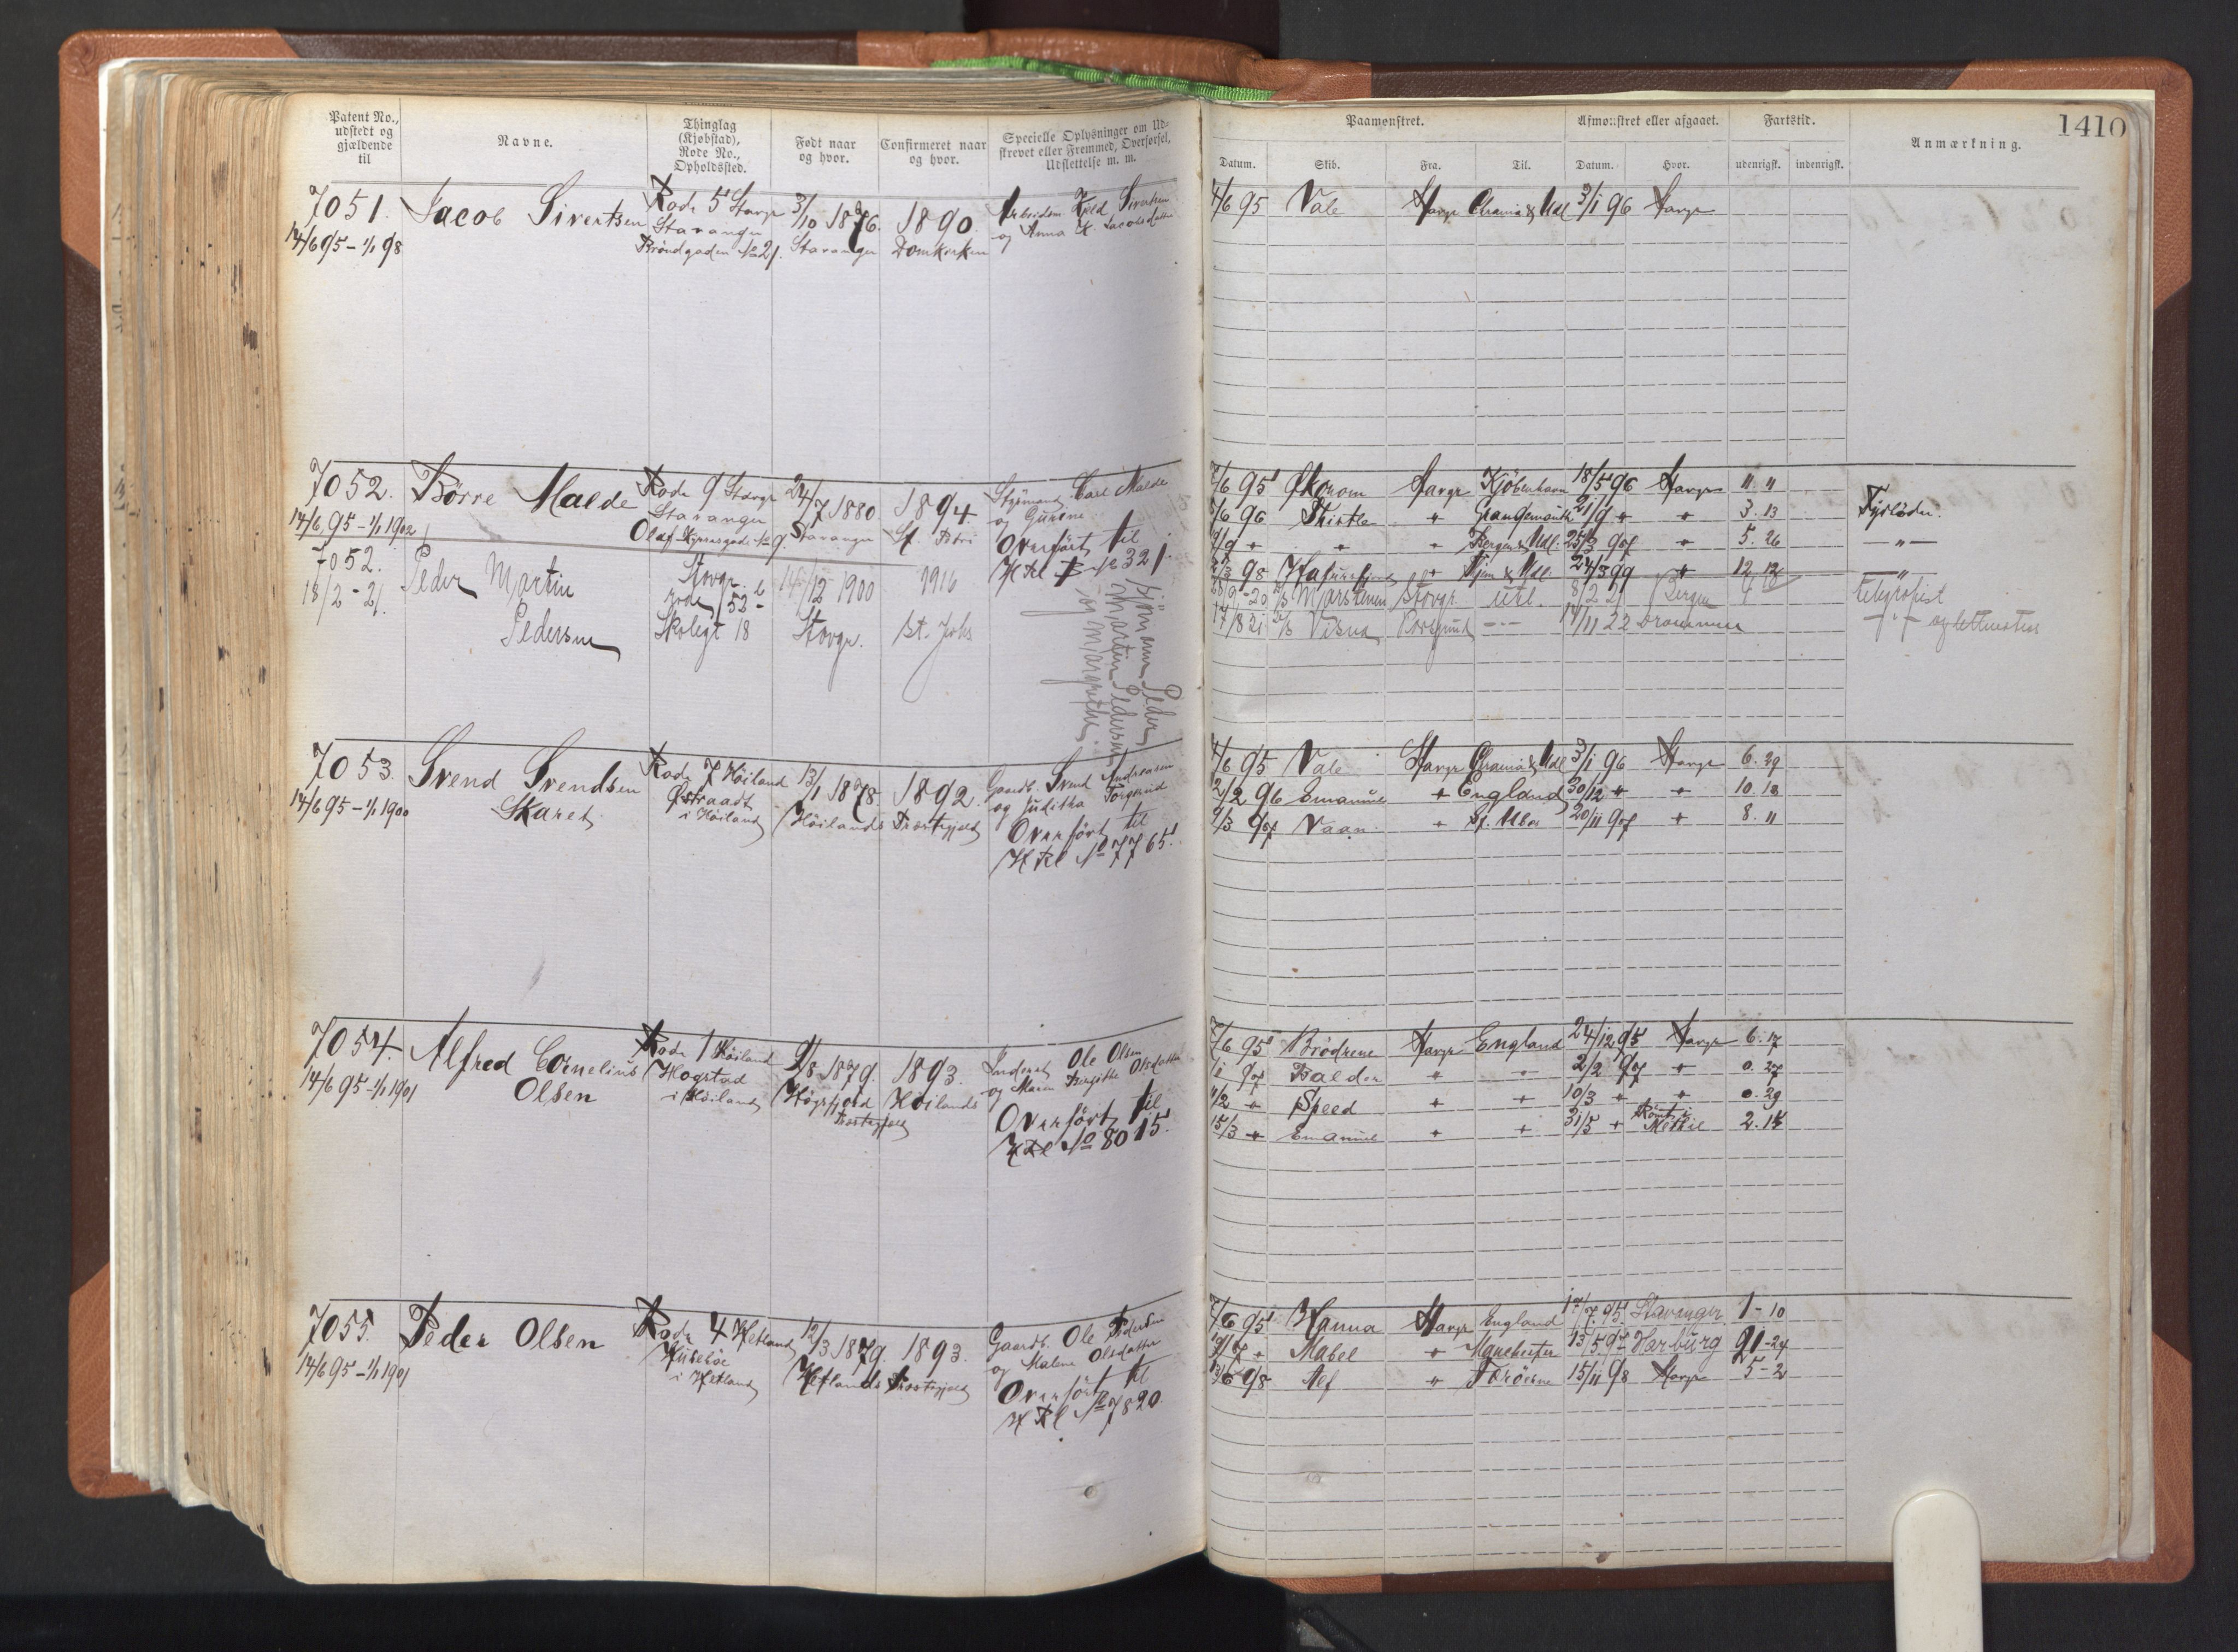 Patent No., udstedt og gjældende til
Navne.
Thinglag (Kjøbstad), Rode No., Opholdssted.
Født naar og hvor.
Confirmeret naar og hvor.
Specielle Oplysninger om Udskrevet eller Fremmed, Overførsel, Udslettelse m. m.
Paamønstret.
Afmønstret eller afgaaet.
Fartstid.
Anmærkning.
1410
Datum. Skib. Fra. Til. Datum. Hvor. udenrigsk. indenrigsk.
7051. Jacob Sivertsen Rode 5 Stavgr 3/10 1876. 1890.
14/6 95 – 1/1 98 Stavanger Stavanger Domkirken
Brøndgaden No 21. og Anna K. Jacobsdatter
4/6 95 Vale Stavgr Chrania & Udl 3/1 96 Stavgr
7052. Børre Malde Rode 9 Stavgr 24/7 1880 1894. Styrmand Carl Malde
14/6 95 – 1/1 1902 Stavanger Stavanger St. Petri og Gurine
Overført til
H Rl No 321.
6 95 Økonom Stavgr Kjöbenhavn 18/5 96 Stavgr 11. 11
6 96 Thistle " Grangemouth 21/9 " " 3. 13 Fyrbøder.
" " " Bergen & Udl. 25/3 97 " 5. 26 — " —
98 " & Udl 24/3 99 " 12 — " —
7052. Peder Martin Pedersen Stavgr. 12 1900 1916
18/2 - 21 rode 52 b
Skolegt 18 Stavgr. St. Johs
sjømann Peder Martin Pedersen
og Margrethe
Stavgr. Utl. 8/2 21 Bergen telegrafist
17/8 21 Visna Porsgrund — " — 14/11 22 Drammen — " — og lettmatros
7053. Svend Svendsen Rode 7 Höiland 13/1 1878. 1892. Gaardb. Svend Andreassen
14/6 95 – 1/1 1900 Skaret Østraadt Höilands Præstegjeld og Juditha
i Höiland
Overført til
H Rl No 7765.
4/6 95 Vale Stavgr Chrania & Udl 3/1 96 Stavgr 6. 29
2/2 96 Emanuel " England 30/12 " " 10. 18
9/3 97 Vaan " St. Ubes 20/11 97 " 8. 11
7054. Alfred Cornelius Rode 1 Höiland 9/8 1879. 1893. Inderst Ole Olsen
14/6 95 – 1/1 1901 Olsen Hogstad Høgsfjord Höilands og Maren Bergitte Olsdatter
i Höiland Præstegjeld
Overført til
H Rl No 8015.
6 95 Brödrene Stavgr England 24/12 95 Stavgr 6. 17
97 Balder " " 2/2 97 " 0. 27
11/2 " Speed " " 10/3 " " 0. 29
15/3 " Emanuel " " 31/5 " Rømt i Methil 2. 15
7055. Peder Olsen Rode 4 Hetland 12/3 1879. 1893. Gaardb. Ole Pedersen
14/6 95 – 1/1 1901 i Hetland Hetlands Præstegjeld og Malene Olsdatter
Overført til
H Rl No 7820.
6 95 Hanna Stavgr England 17/7. 95 Stavanger 1 - 10
Mabel " Manchester 13/5 97 Harburg 21 - 24
6 98 Alf " Færöerne 15/11 98 Stavgr 5 - 2